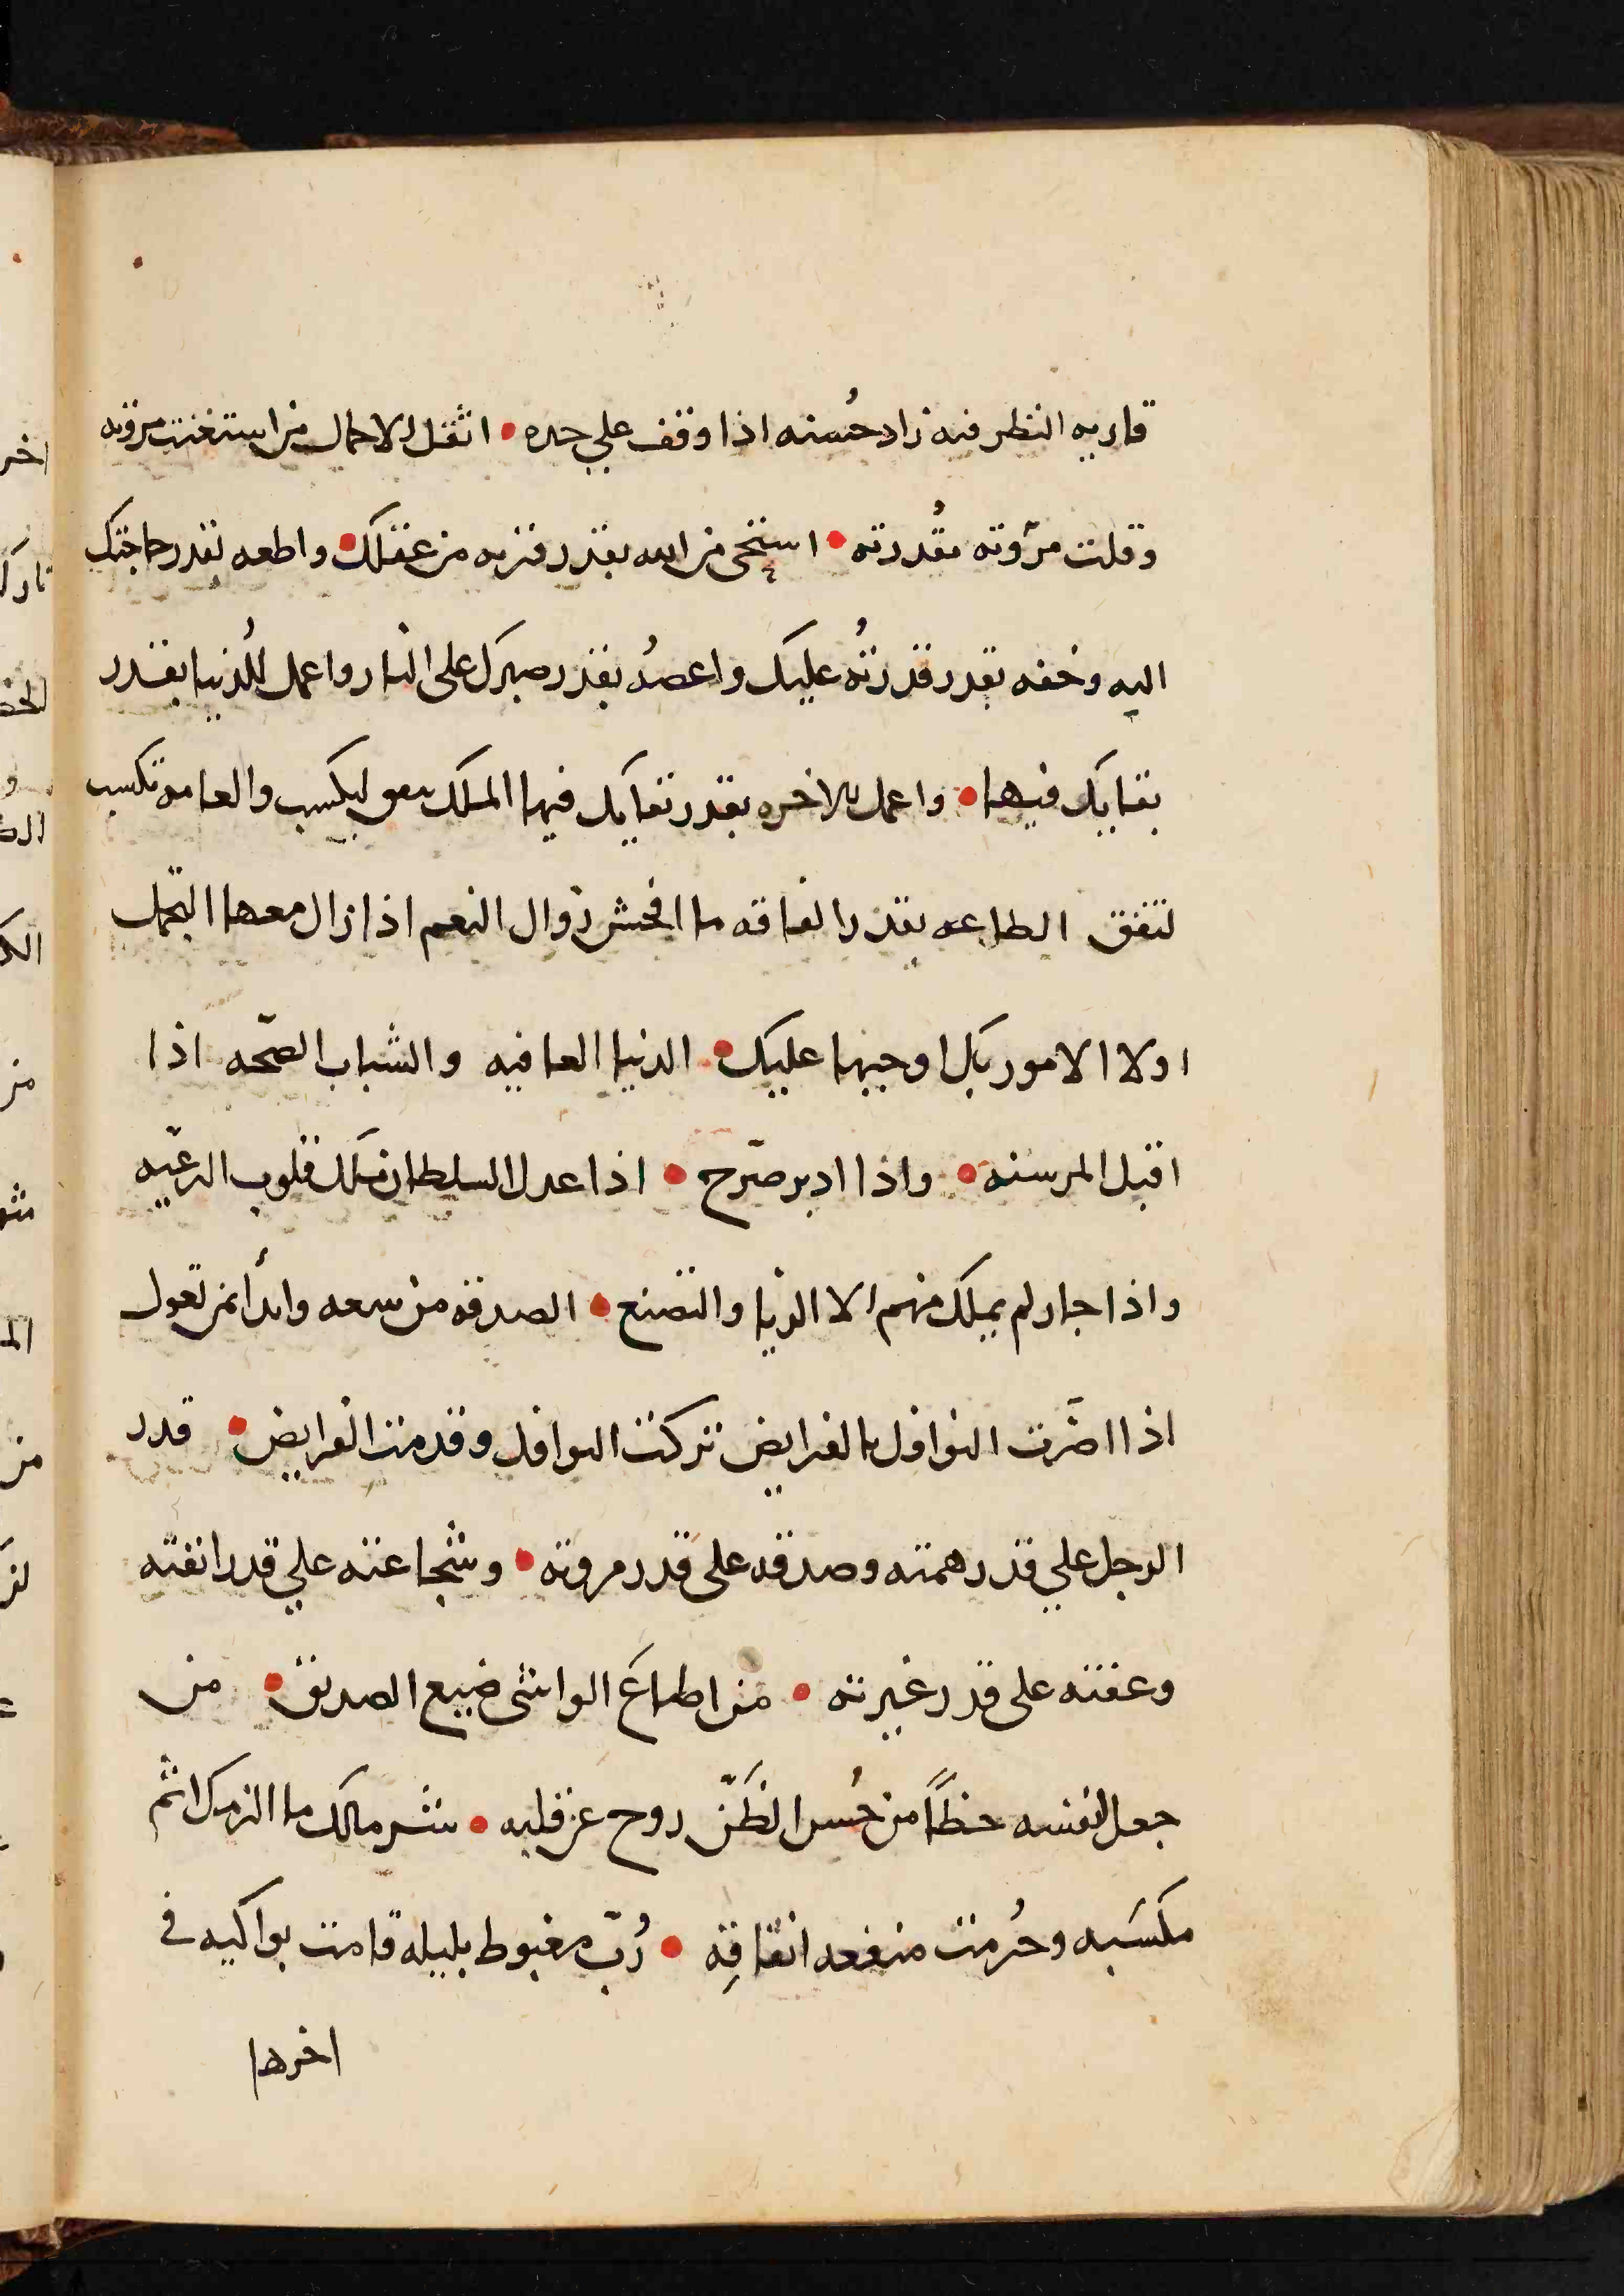 قاربه النظر فيه زاد حُسنه اذا وقف علي حده • اثقل الاحمال من استغنت مروته
وقلت مرّوته مقُدرته • استحي من الله بقدر قربه من عقلك • واطعه بقدر حاجتك
اليه وخفه بقدر قدرتُه عليك واعصُه بقدر صبرك على النار واعمل للُدنيا بقدر
بقايك فيها • واعمل للاخره بقدر بقايك فيها الملك ينفق ليكسب والعامه تكسب
لتنفق الطاعه بقدر الفاقه ما افحش زوال النعم اذا زال معها التجمل
اولا الامور بك اوجبها عليك • الدنيا العافيه والشباب الصّحه اذا
اقبل المرسنه • واذا ادبر صرّح • اذا عدل السلطان ملك قلوب الرعيّه
واذا جار لم يملك منهم الا الريا والتصنع • الصدقه من سعه وابدأ بمن تعول
اذا اضرّت النوافل بالفرايض تركت النوافل وقدمت الفرايض • قدر
الرجل علي قدر همته وصدقه على قدر مروته • وشجاعته علي قدر انفته
وعفته على قدر غيرته • من اطاعَ الواشي ضيع الصديق • من
جعل لنفسه حظاً من حُسن الظَنّ روح عن قلبه • شر مالك ما الزمك اثم
مكسَبه وحُرمت منفعه انفاقِه • رُبّ مغبوط بليله قامت بواكيه في
اخرها